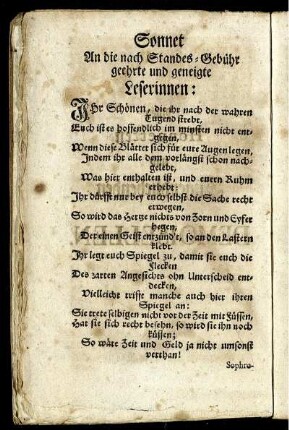 Sonnet
An die nach Standes-Gebühr
geehrte und geneigte
Leserinnen:
Ihr Schönen, die ihr nach der wahren
Tugend strebt,
Euch ist es hoffendlich im minsten nicht ent-
gegen,
Wenn diese Blätter sich für eure Augen legen,
Indem ihr alle dem vorlängst schon nach-
gelebt,
Was hier enthalten ist, und euern Ruhm
erhebt:
Ihr dürfft nur bey euch selbst die Sache recht
erwegen,
So wird das Hertze nichts von Zorn und Eyfer
hegen,
Der einen Geist entzünd't, so an den Lastern
klebt.
Ihr legt euch Spiegel zu, damit sie euch die
Flecken
Des zarten Angesichts ohn Unterscheid ent-
decken,
Vielleicht trifft manche auch hier ihren
Spiegel an:
Sie trete selbigen nicht vor der Zeit mit Füssen,
Hat sie sich recht besehn, so wird sie ihn noch
küssen;
So wäre Zeit und Geld ja nicht umsonst
verthan!
Sophro-